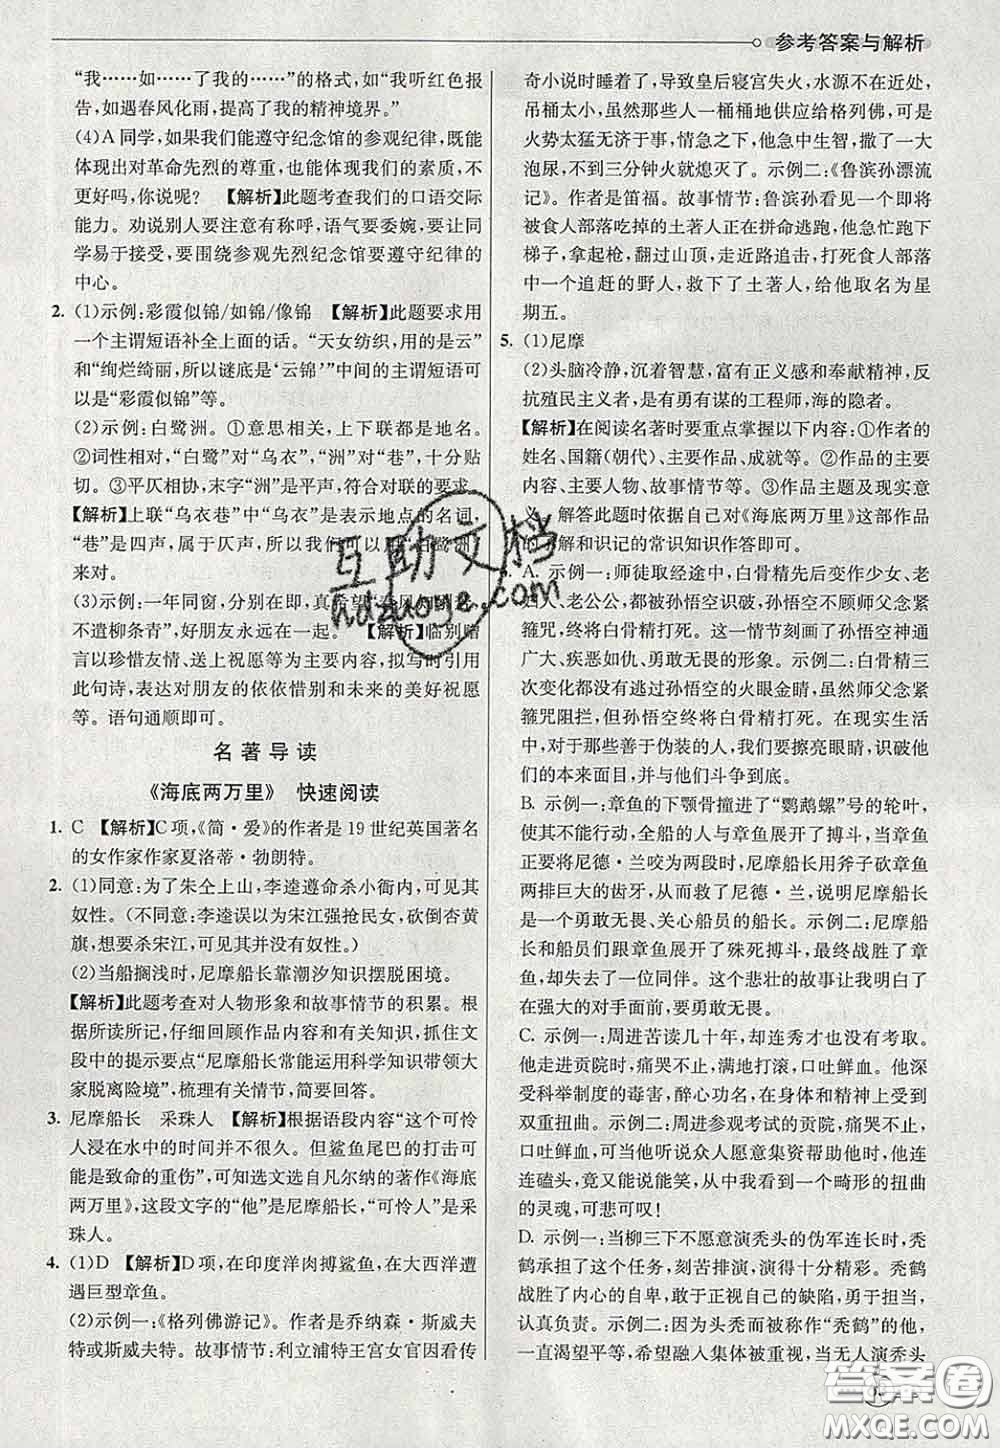 参考答案与解析
“我……如……了我的……”的格式,如“我听红色报
告,如遇春风化雨,提高了我的精神境界。”
(4)A同学,如果我们能遵守纪念馆的参观纪律,既能
体现出对革命先烈的尊重,也能体现我们的素质,不
更好吗,你说呢? 【解析】此题考查我们的口语交际
能力。劝说别人要注意有称呼,语气要委婉,要让同
学易于接受,要围绕参观先烈纪念馆要遵守纪律的
中心。
2. (1)示例:彩霞似锦/如锦/像锦 【解析】此题要求用
一个主谓短语补全上面的话。“天女纺织,用的是云”
和“绚烂绮丽,所以谜底是‘云锦’”中间的主谓短语可
以是“彩霞似锦”等。
(2)示例:白鹭洲。①意思相关,上下联都是地名。
②词性相对,“白鹭”对“乌衣”,“洲”对“巷”,十分贴
切。③平仄相协,末字“洲”是平声,符合对联的要求。
【解析】上联“乌衣巷”中“乌衣”是表示地点的名词,
“巷”是四声,属于仄声,所以我们可以用“白鹭洲”
来对。
(3)示例:一年同窗,分别在即,真希望“春风知别苦,
不遣柳条青”,好朋友永远在一起。 【解析】临别赠
言以珍惜友情、送上祝愿等为主要内容,拟写时引用
此句诗,表达对朋友的依依惜别和未来的美好祝愿
等。语句通顺即可。
名著导读
《海底两万里》 快速阅读
1. C 【解析】C项,《简·爱》的作者是19世纪英国著名
的女作家作家夏洛蒂·勃朗特。
2. (1)同意:为了朱仝上山,李逵遵命杀小衙内,可见其
奴性。(不同意:李逵误以为宋江强抢民女,砍倒杏黄
旗,想要杀宋江,可见其并没有奴性。)
(2)当船搁浅时,尼摩船长靠潮汐知识摆脱困境。
【解析】此题考查对人物形象和故事情节的积累。根
据所读所记,仔细回顾作品内容和有关知识,抓住文
段中的提示要点“尼摩船长常能运用科学知识带领大
家脱离险境”,梳理有关情节,简要回答。
3. 尼摩船长 采珠人 【解析】根据语段内容“这个可怜
人浸在水中的时间并不很久。但鲨鱼尾巴的打击可
能是致命的重伤”,可知选文选自凡尔纳的著作《海底
两万里》,这段文字的“他”是尼摩船长,“可怜人”是采
珠人。
4. (1)D 【解析】D项,在印度洋肉搏鲨鱼,在大西洋遭
遇巨型章鱼。
(2)示例一:《格列佛游记》。作者是乔纳森·斯威夫
特或斯威夫特。故事情节:利立浦特王宫女官因看传
奇小说时睡着了,导致皇后寝宫失火,水源不在近处,
吊桶太小,虽然那些人一桶桶地供应给格列佛,可是
火势太猛无济于事,情急之下,他急中生智,撒了一大
泡尿,不到三分钟火就熄灭了。示例二:《鲁滨孙漂流
记》。作者是笛福。故事情节:鲁滨孙看见一个即将
被食人部落吃掉的土著人正在拼命逃跑,他急忙爬下
梯子,拿起枪,翻过山顶,走近路追击,打死食人部落
中一个追赶的野人,救下了土著人,给他取名为星
期五。
5. (1)尼摩
(2)头脑冷静,沉着智慧,富有正义感和奉献精神,反
抗殖民主义者,是有勇有谋的工程师,海的隐者。
【解析】在阅读名著时要重点掌握以下内容:①作者的
姓名、国籍(朝代)、主要作品、成就等。②作品的主要
内容、主要人物、故事情节等。③作品主题及现实意
义。解答此题时依据自己对《海底两万里》这部作品
的了解和识记的常识知识作答即可。
A. 示例一:师徒取经途中,白骨精先后变作少女、老
妇人、老公公,都被孙悟空识破,孙悟空不顾师父念紧
箍咒,终将白骨精打死。这一情节刻画了孙悟空神通
广大、疾恶如仇、勇敢无畏的形象。示例二:白骨精三
次变化都没有逃过孙悟空的火眼金睛,虽然师父念紧
箍咒阻拦,但孙悟空终将白骨精打死。在现实生活
中,面对那些善于伪装的人,我们要擦亮眼睛,识破他
们的本来面目,并与他们斗争到底。
B. 示例一:章鱼的下颚骨撞进了“鹦鹉螺”号的轮叶,
使其不能行动。全船的人与章鱼展开了搏斗,当章鱼
正要将尼德·兰咬为两段时,尼摩船长用斧子砍章鱼
两排巨大的齿牙,打死章鱼救了尼德·兰,说明尼摩船长
是一个勇敢无畏、关心船员的船长。示例二:尼摩船
长和船员们跟章鱼展开了殊死搏斗,最终战胜了章
鱼,却失去了一位同伴。这个悲壮的故事让我明白了
在强大的对手面前,要勇敢无畏。
C. 示例一:周进苦读几十年,却连秀才也没有考取。
他走进贡院时,痛哭不止,满地打滚,口吐鲜血。他
深受科举制度的毒害,醉心功名,在精神和人格上
双重扭曲。示例二:周进参观考试的贡院,痛哭不止,
口吐鲜血,可当他听说众人愿意集资帮助他时,他连
连磕头,竟又能说能笑,从中我看到一个畸形的扭曲
的灵魂,可悲可叹!
D. 示例一:当柳三下不愿意演秃头的伪军连长时,秃
鹤高兴地接受了这个任务,刻苦排演,演得十分精彩。秃鹤
战胜了内心的自卑,敢于正视自己的缺陷,勇于担当,
认真负责。示例二:因为头秃而被称作“秃鹤”的他,
一直渴望平等,希望融入集体被重视,当无人演秃头
互助文档
hdzuoye.com
答案圈
MXQE.COM